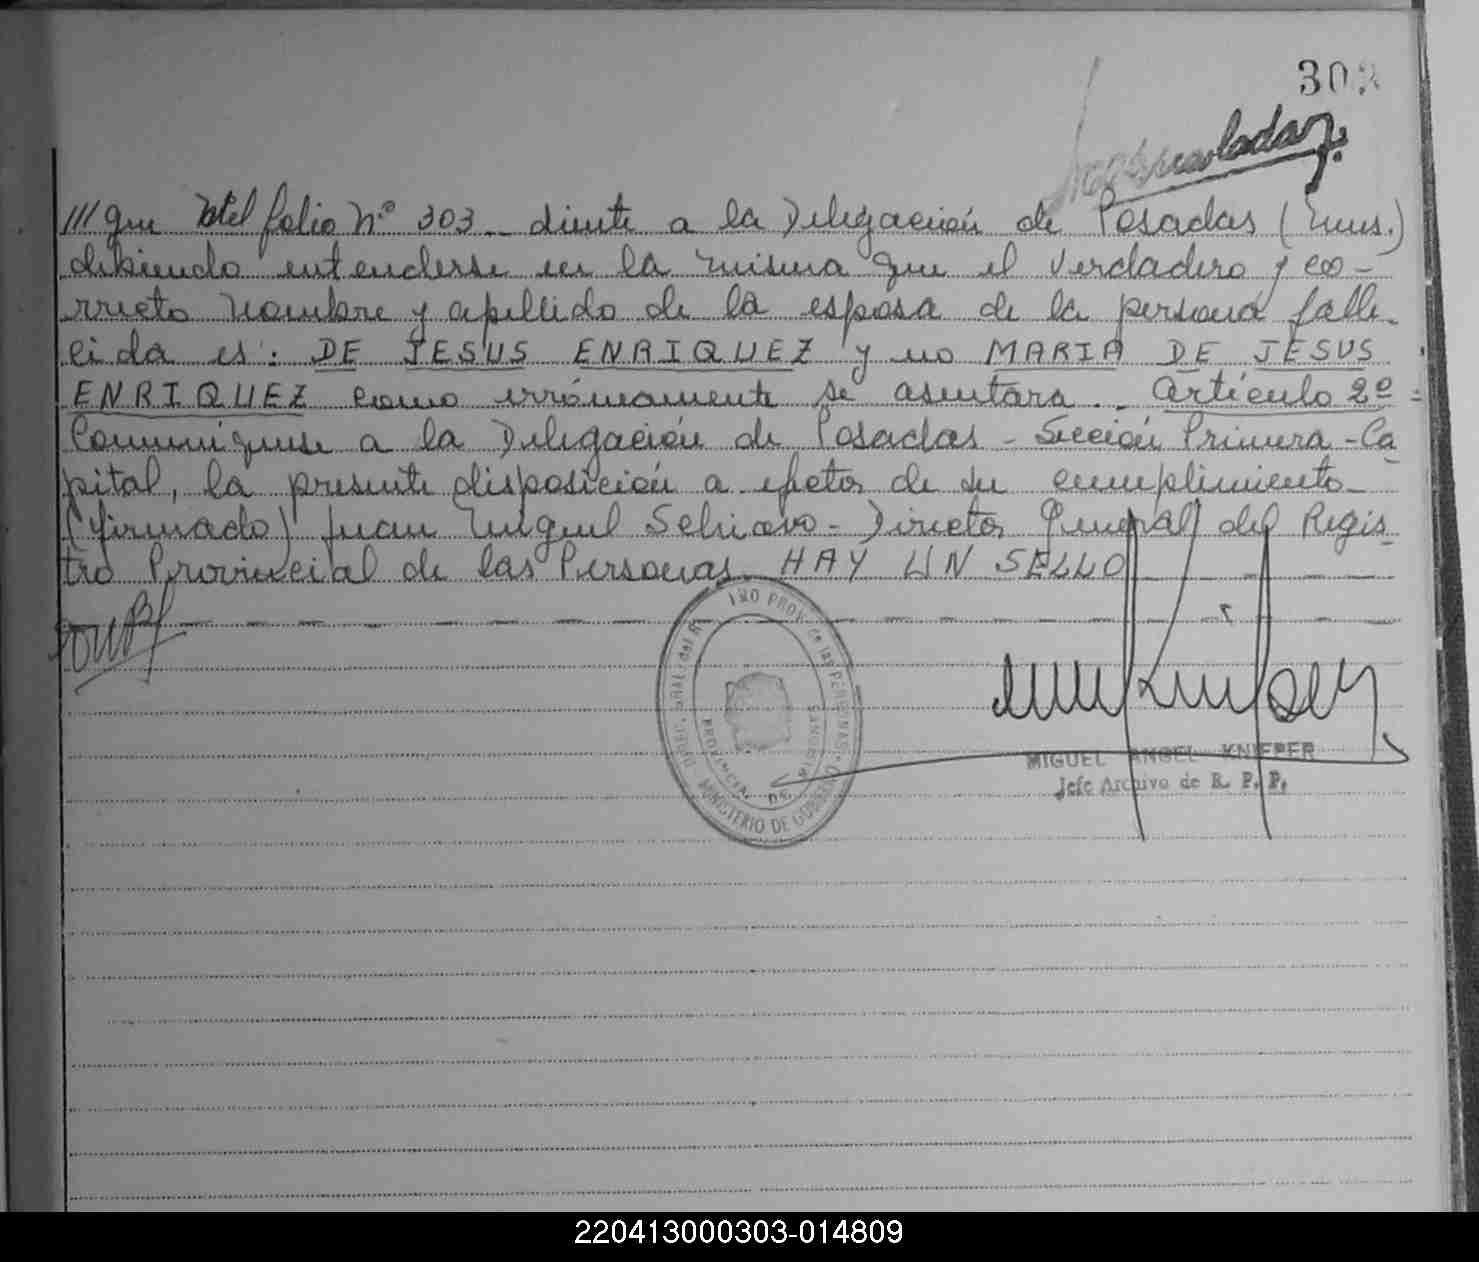 303
/// que del folio Nº 303 - diente a la Delegación de Posadas (Mnes.)
debiendo entenderse en la misma que el verdadero y co-
rrecto nombre y apellido de la esposa de la persona falle-
cida es: DE JESUS ENRIQUEZ y no MARIA DE JESUS
ENRIQUEZ como erróneamente se asentara.- Artículo 2º=
Comuníquese a la Delegación de Posadas - Sección Primera - Ca
pital, la presente disposición a efetos de su cumplimiento -
(firmado) Juan Miguel Schiavo - Director General del Regis-
tro Provincial de las Personas. HAY UN SELLO
PROV. de las PERSONAS
MINISTERIO DE GOBIERNO
PROVINCIA DE MISIONES
MIGUEL ANGEL KNIEPER
Jefe Archivo de R. P. P.
220413000303-014809